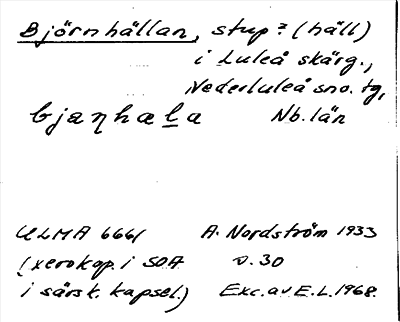 Björnhällan, stup? (häll)
i Luleå skärg.,
Nederluleå sno. tg,
bjæŋhæḻa Nb. län
ULMA 6661 A. Nordström 1933
(xerokop. i SOA s. 30
i särsk. kapsel.) Exc. av E.L. 1968.